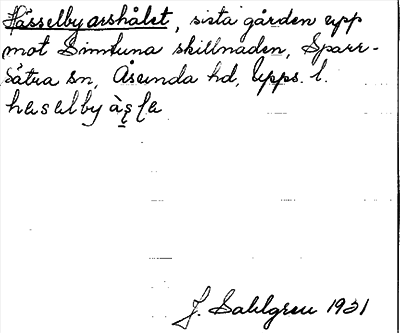 Hässelby arshålet, sista gården upp
mot Simtuna skillnaden, Sparr-
sätra sn, Åsunda hd, Upps. l.
haselby
J. Sahlgren 1931